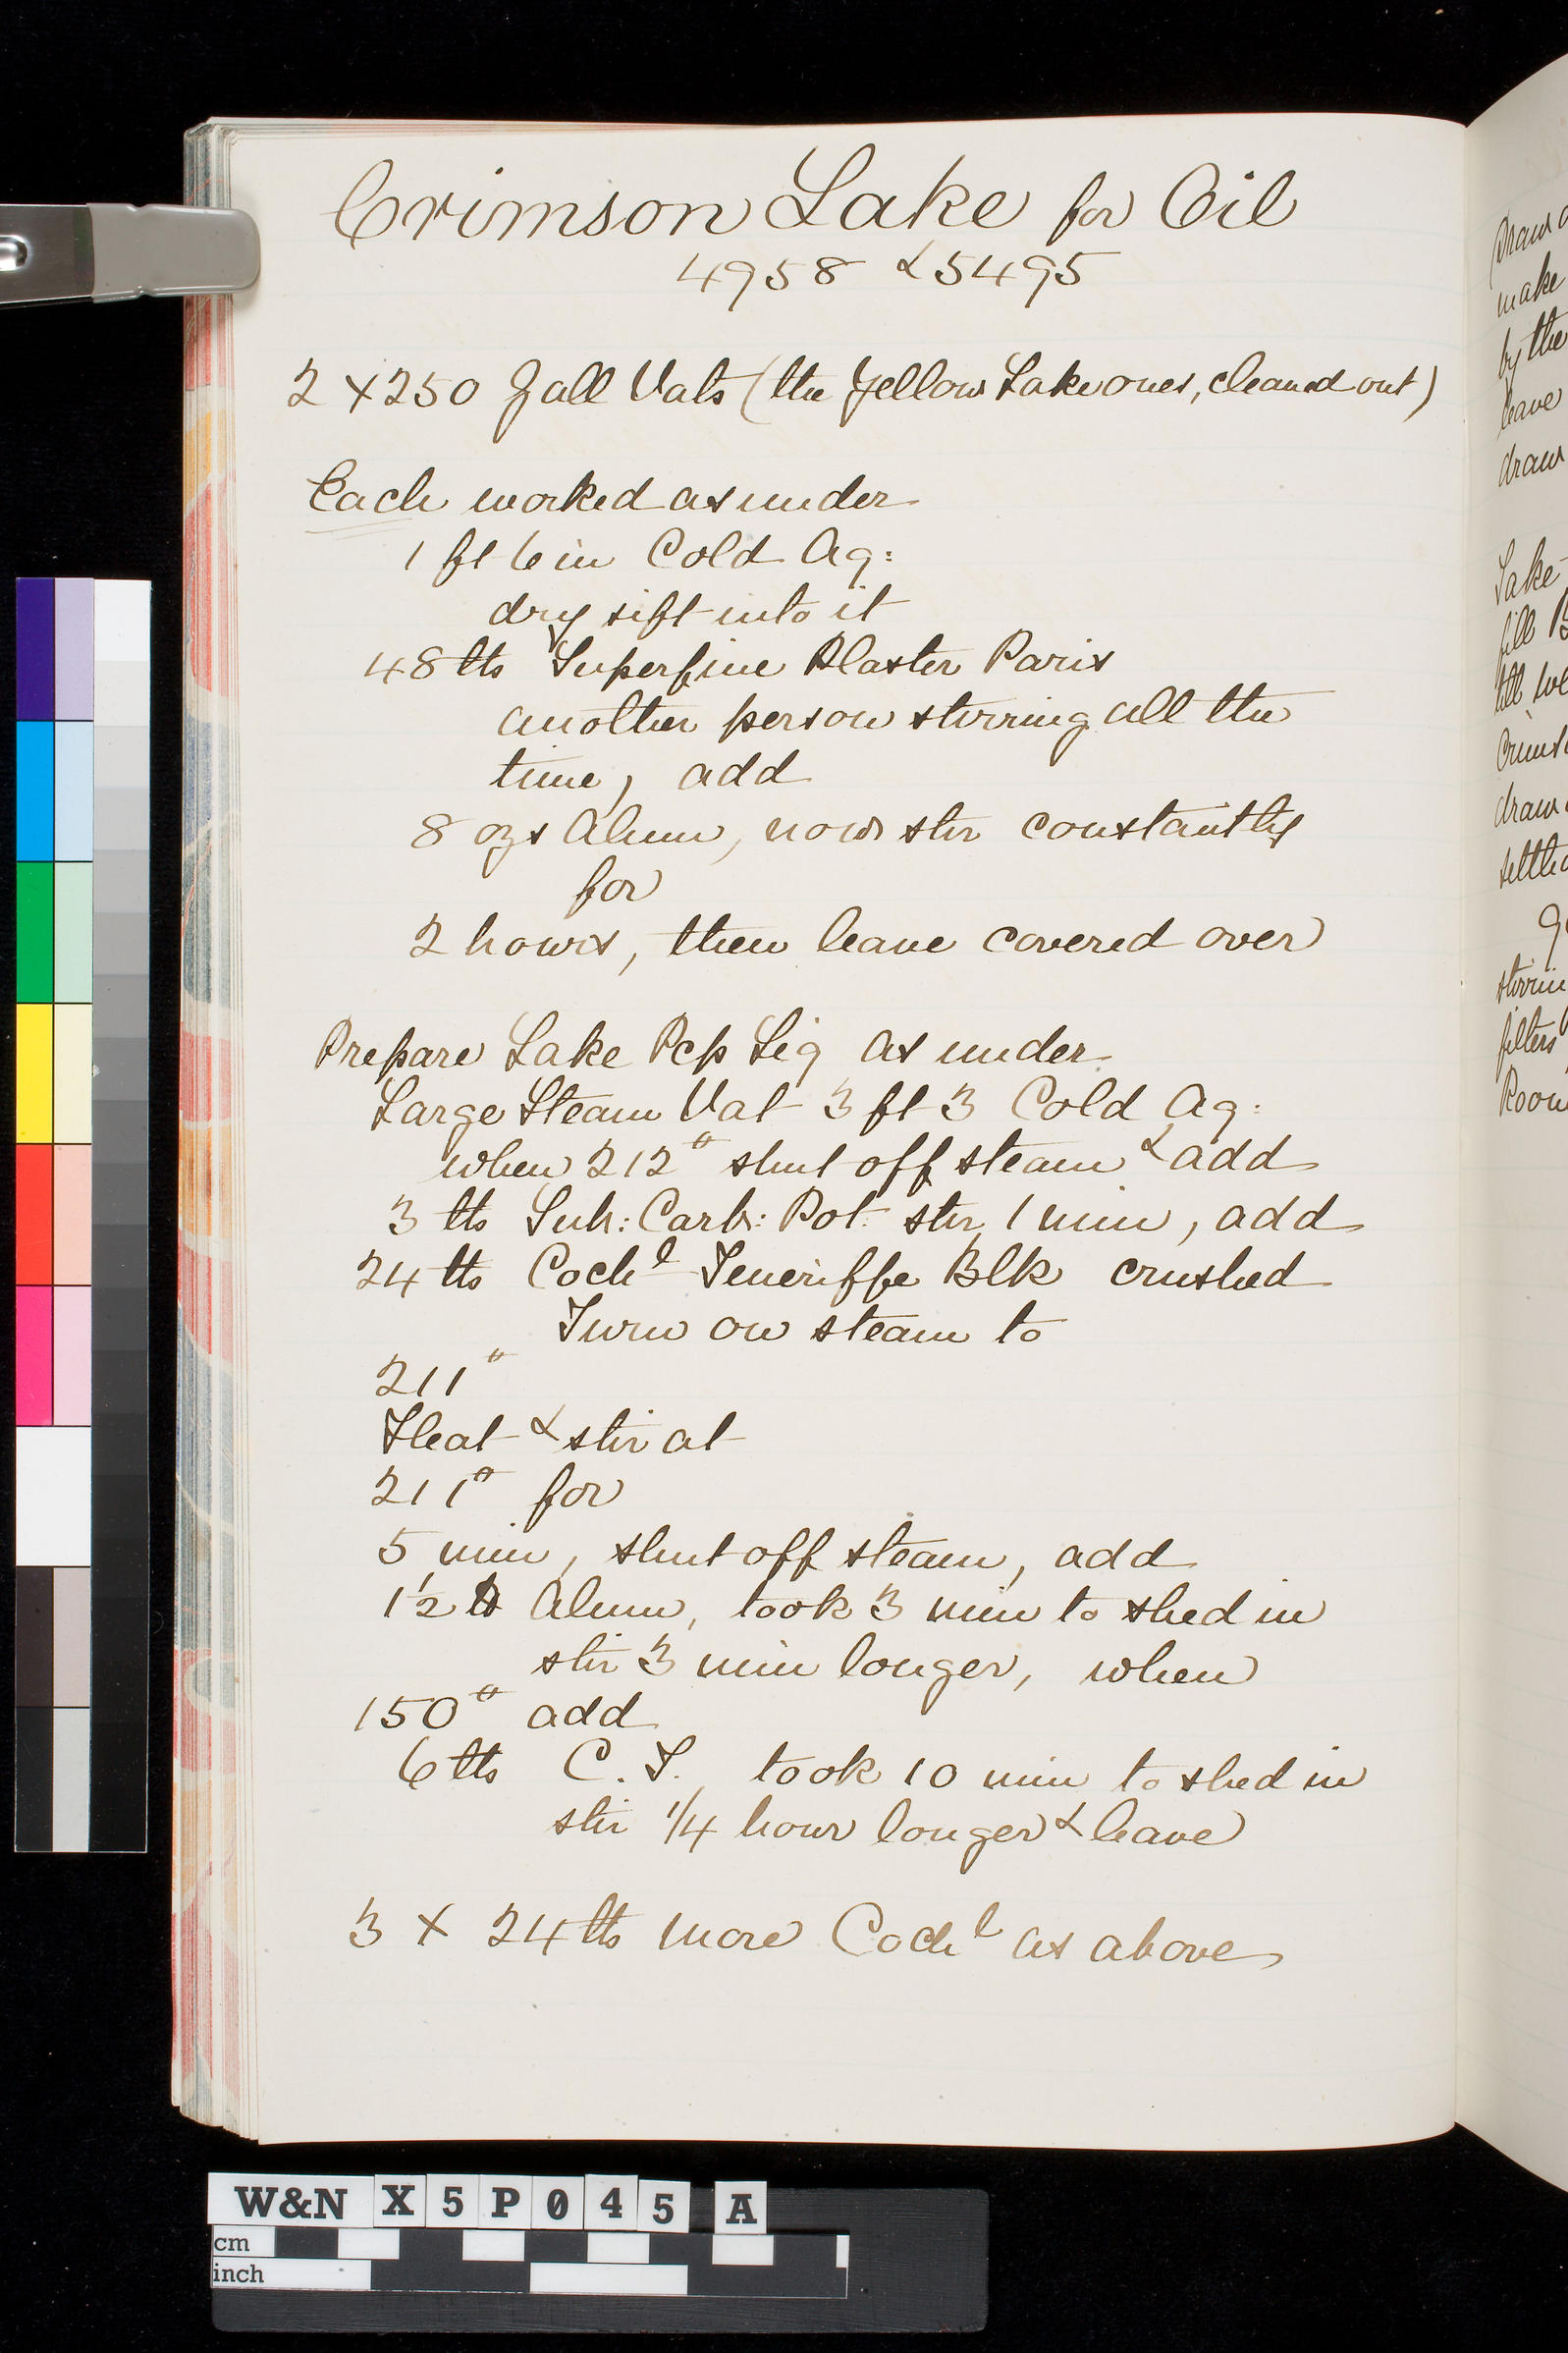 Crimson Lake for Oil
4958 & 5495
2 × 250 Gall Vats (the Yellow Lake ones, cleaned out)
Each worked as under
1 ft 6 in Cold Aq:
dry sift into it
48 lbs Superfine Plaster Paris
another person stirring all the
time, add
8 ozs Alum, now stir constantly
for
2 hours, then leave covered over
Prepare Lake Pcp Liq as under
Large Steam Vat 3 ft 3 Cold Aq:
when 212° shut off steam & add
3 lbs Sub: Carb: Pot: stir 1 min, add
24 lbs Cochl Teneriffe Blk crushed
Turn on steam to
211°
Heat & stir at
211° for
5 min, shut off steam, add
1½ lb Alum, took 3 min to shed in
stir 3 min longer, when
150° add
6 lbs C. T. took 10 min to shed in
stir 1/4 hour longer & leave
3 × 24 lbs more Cochl as above
Draw
make
by the
leave
draw
Take
fill
till
draw
stirrin
filters
Room
W&N X5P045 A
cm
inch